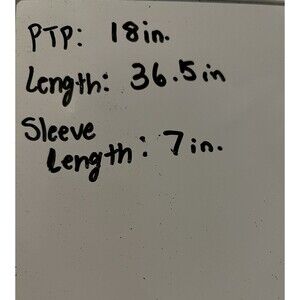 PTP: 18in.
Length: 36.5in
Sleeve
Length: 7in.